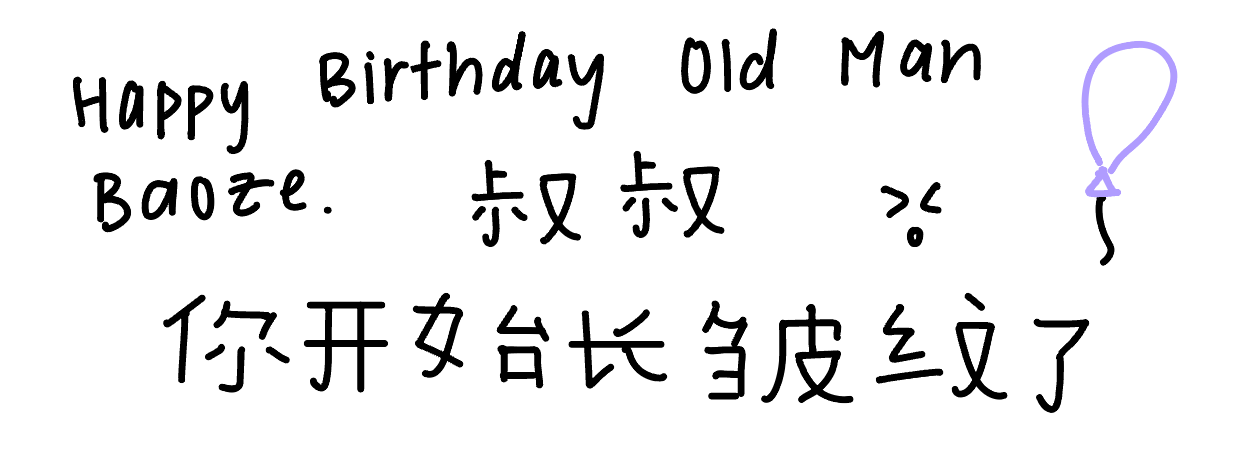 Happy Birthday Old Man
Baoze. 叔叔
你开始长皱皮纹了